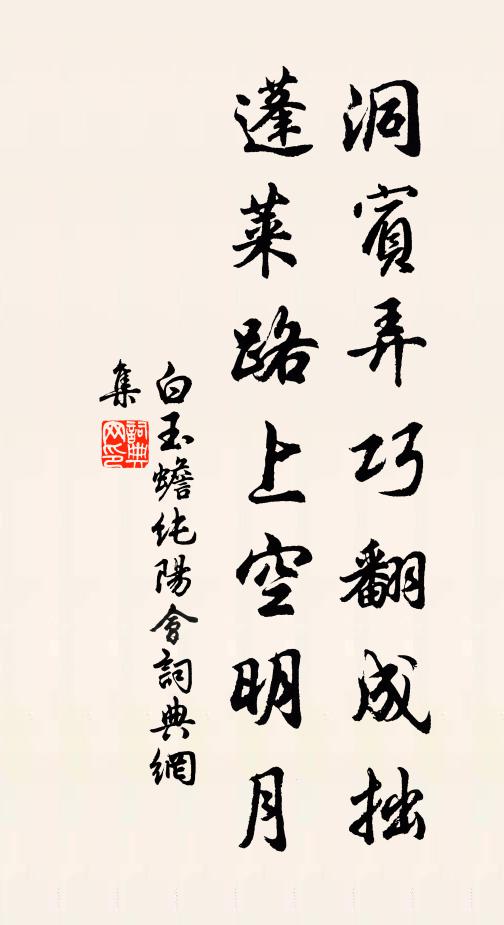 洞賓弄巧翻成拙
蓬萊路上空明月
白玉蟾純陽會詞典網
集
詞典網印